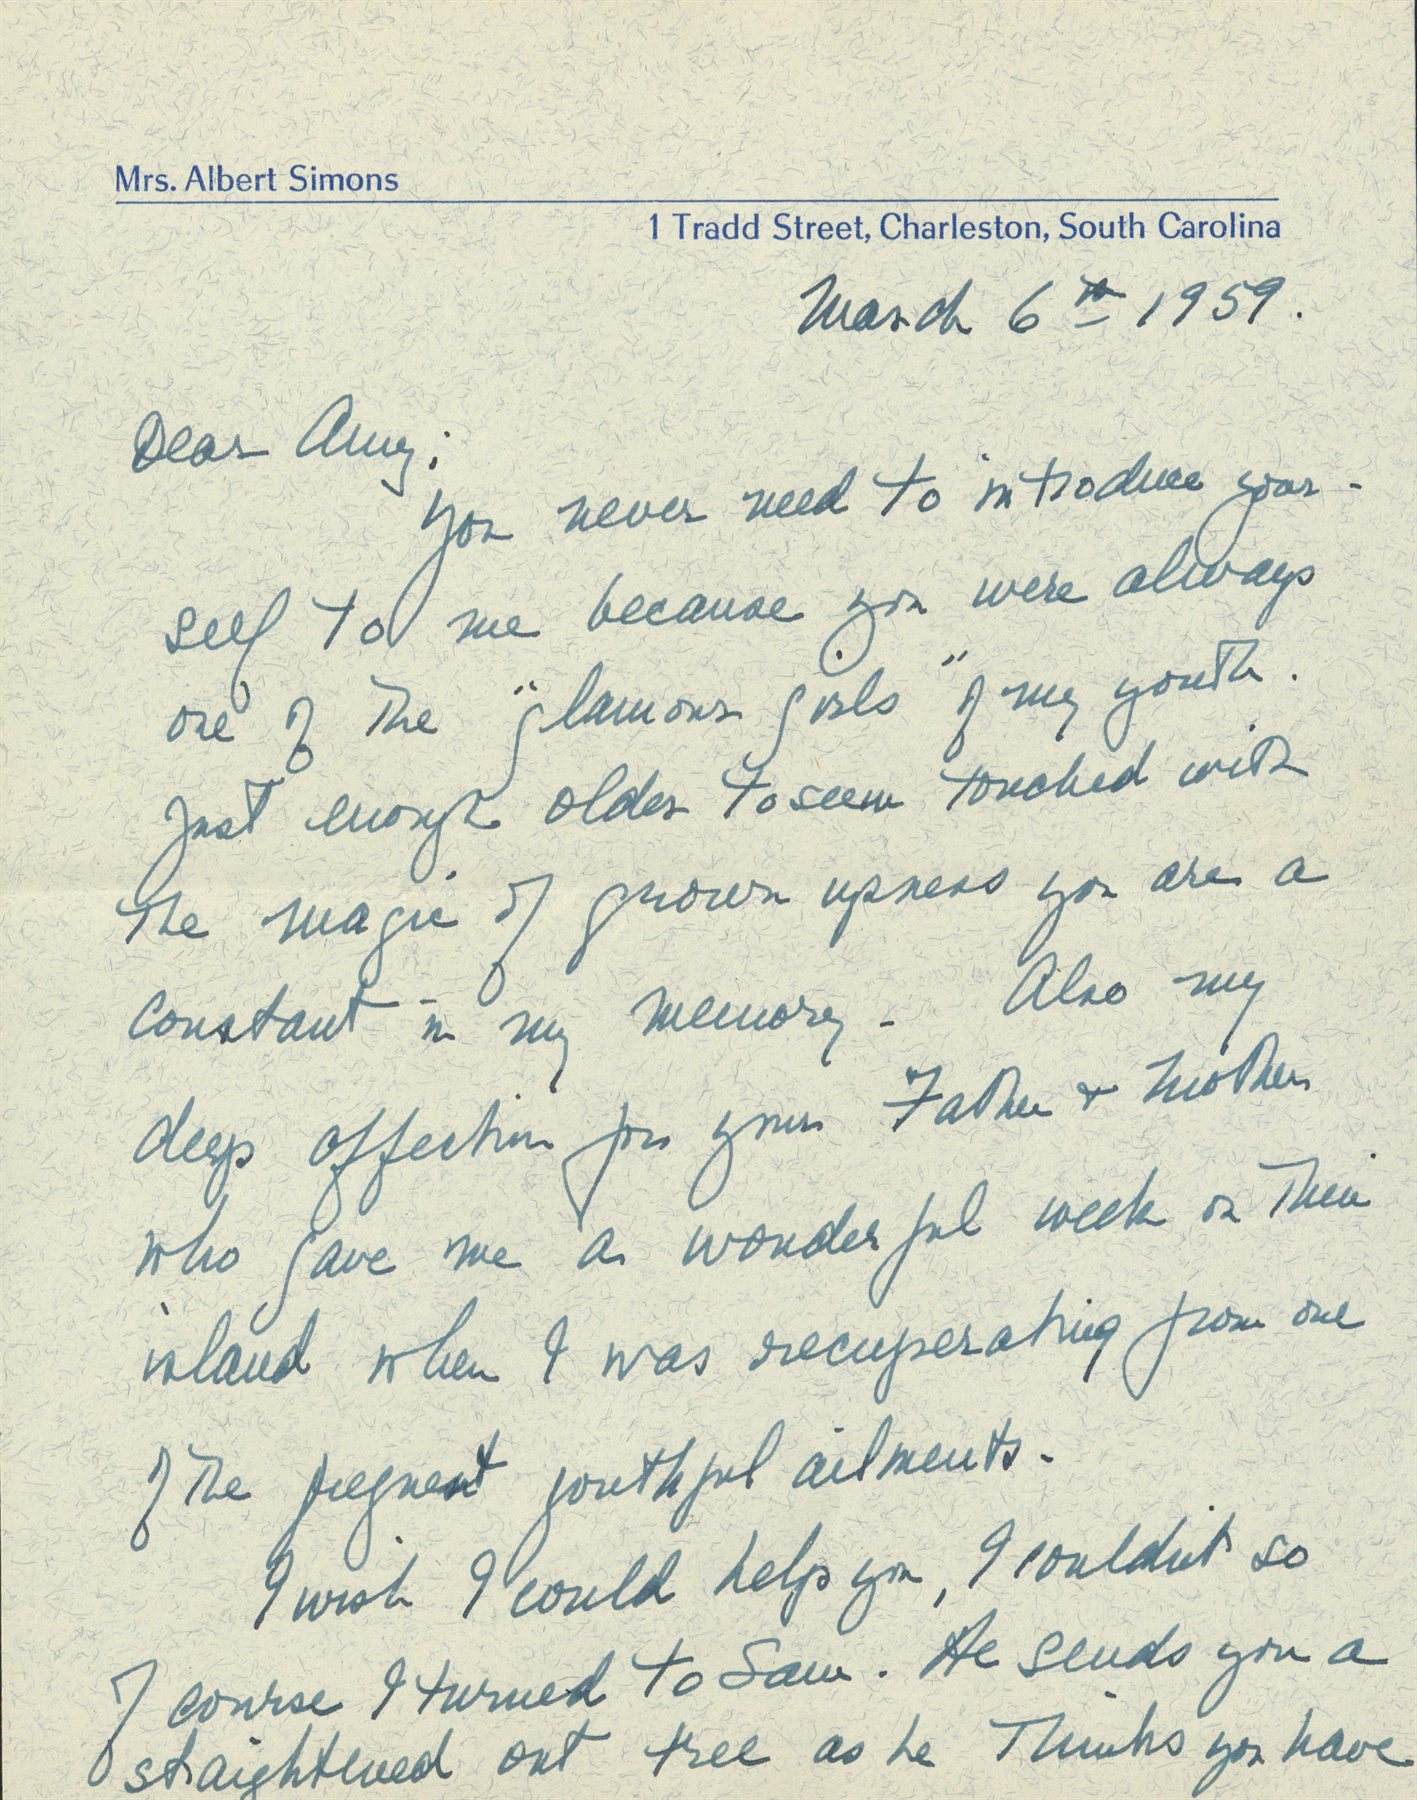 Mrs. Albert Simons
1 Tradd Street, Charleston, South Carolina
March 6th 1959.
Dear Amy;
You never need to introduce your-
self to me because you were always
one of the "glamour girls" of my youth.
Just enough older to seem touched with
the magic of grown upness you are a
constant in my memory. Also my
deep affection for your Father & Mother
who gave me a wonderful week on their
island when I was recuperating from one
of the youthful ailments.
I wish I could help you, I couldn't so
of course I turned to Sam. He sends you a
straightened out tree as he thinks you have